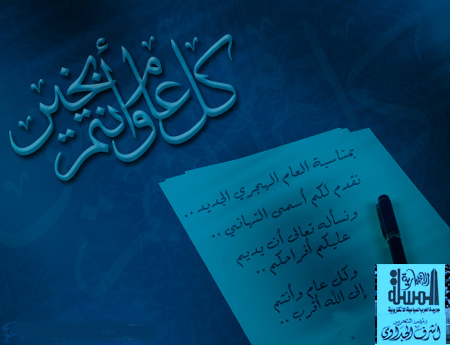 كل عام وأنتم بخير
بمناسبة العام الهجري الجديد ..
نقدم لكم أسمى التهاني ..
ونسأله تعالى أن يديم
عليكم أفراحكم ..
وكل عام وأنتم
إلى الله أقرب ..
الاخبارية
المسلة
جريدة العرب السياحية الالكترونية
ورئيس التحرير
أشرف الجداوى